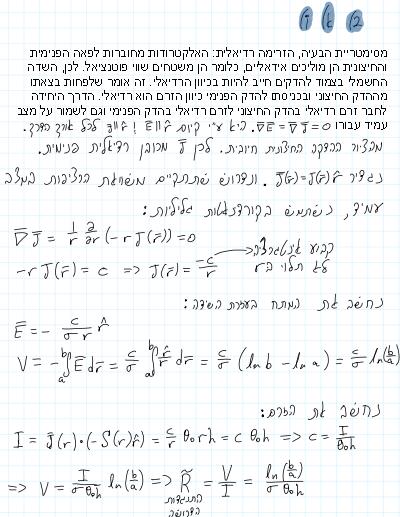 מסימטריית הבעיה, הזרימה רדיאלית: האלקטרודות מחוברות לפאה הפנימית
והחיצונית הן מוליכים אידאליים, כלומר הן משטחים שווי פוטנציאל. לכן, השדה
החשמלי בצמוד להדקים חייב להיות בכיוון הרדיאלי. זה אומר שלפחות בצאתו
מההדק החיצוני ובכניסתו להדק הפנימי כיוון הזרם הוא רדיאלי. הדרך היחידה
לחבר זרם רדיאלי בהדק החיצוני לזרם רדיאלי בהדק הפנימי וגם לשמור על מצב
עמיד עבורו ∇E = ∇J = 0. היא ע"י קיום J||r̂ ! E||r̂ לכל אורך הדרך.
ההדקה החיצונית חיובית. לכן J מכוון רדיאלית פנימית.
נגדיר J(r̄) = J(r) r̂. ונדרוש שתתקיים משוואת הרציפות במצב
עמיד, נשתמש בקורדינטות גליליות:
∇J = 1/r ∂/∂r (-r J(r̄)) = 0
קבוע אינטגרציה
-r J(r̄) = c => J(r̄) = -c/r
לא תלוי בr
נחשב את המתח בעזרת השדה:
E = - c/(σ r) r̂
V = -∫ₐᵇ E dr = c/σ ∫ₐᵇ r̂/r dr = c/σ (ln b - ln a) = c/σ ln(b/a)
נחשב את הזרם:
I = J(r)·(-S(r)r̂) = c/r θ₀rh = cθ₀h => c = I/(θ₀h)
=> V = I/(σθ₀h) ln(b/a) => R = V/I = ln(b/a)/(σθ₀h)
התנגדות
הדרושה